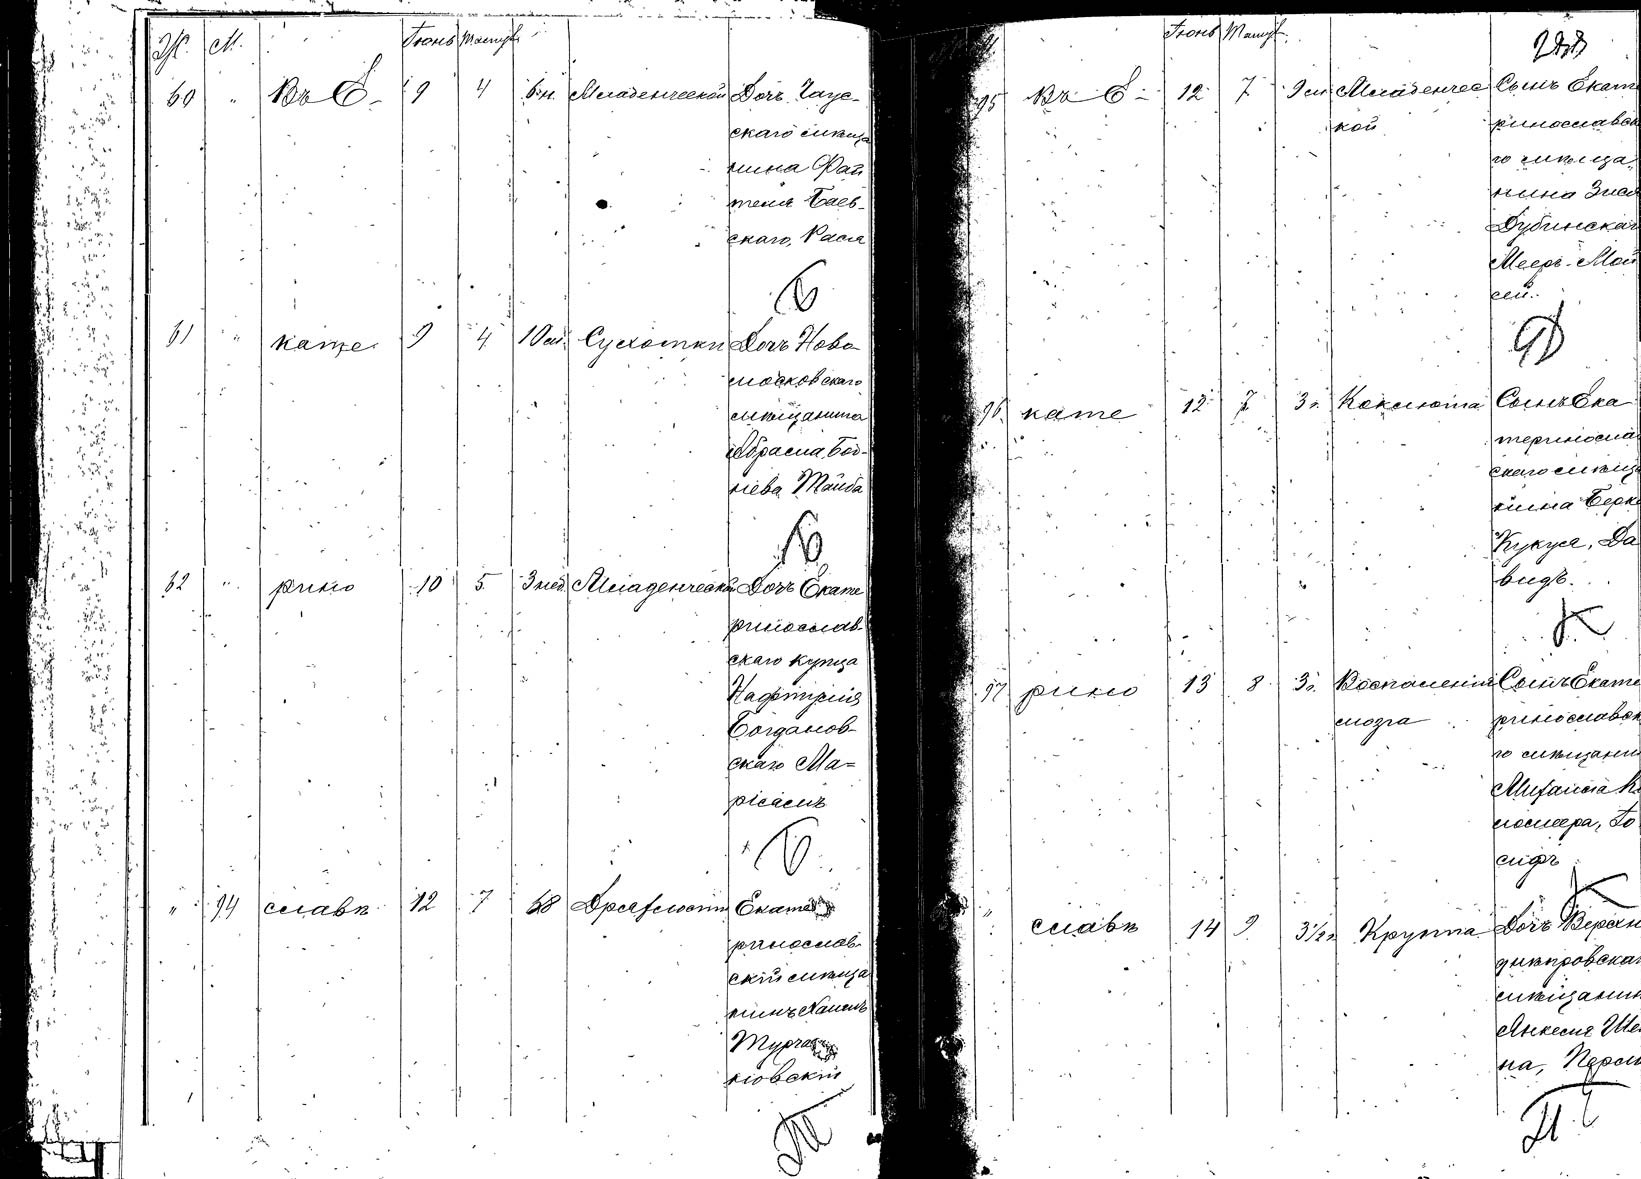 Ж. М. Іюнь Тамуз
60 " Въ Е- 9 4 6 н. Младенческой Дочь Чаус-
скаго мѣща
нина Фай
теля Баев-
скаго, Рася
Б
61 " кате 9 4 10 м. Сухотки Дочь Ново
московскаго
мѣщанина
Абрама Бод-
нева Тайба
Б
62 " рино 10 5 3 нед. Младенческой Дочь Екате
ринослав-
скаго купца
Нафтулія
Богданов-
скаго Ма=
ріасмъ
Б
" 94 славѣ 12 7 68 Дряхлости Екате
ринослав-
скій мѣща
нинъ Хаимъ
новскій
Т
М. Іюнь Тамуз.
95 Въ Е- 12 7 9 м. Младенчес Сынъ Екате
кой ринославск
го мѣща
нина Зися
Дубинскаг
Мееръ-Мой
сей.
Д
96 кате 12 7 3 г. Коклюша Сынъ Ека
теринослав
скаго мѣща
нина Берк
Кукуя, Да
видъ.
К
97 рино 13 8 3 г. Воспаленія Сынъ Екате
мозга ринославск
го мѣщани
Михаила К
ломера, Іо
сифъ
К
" славѣ 14 9 3½ г. Крупа Дочь Верхн
днѣпровскаг
мѣщанин
Янкеля Ше
на, Перл